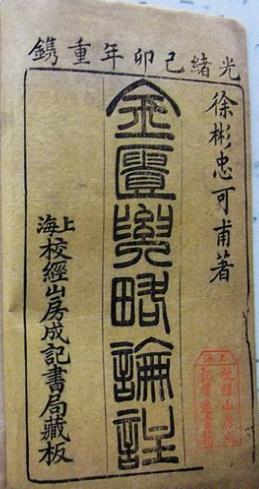 光緒己卯年重鐫
徐彬忠可甫著
金匱要略論註
上海校經山房成記書局藏板